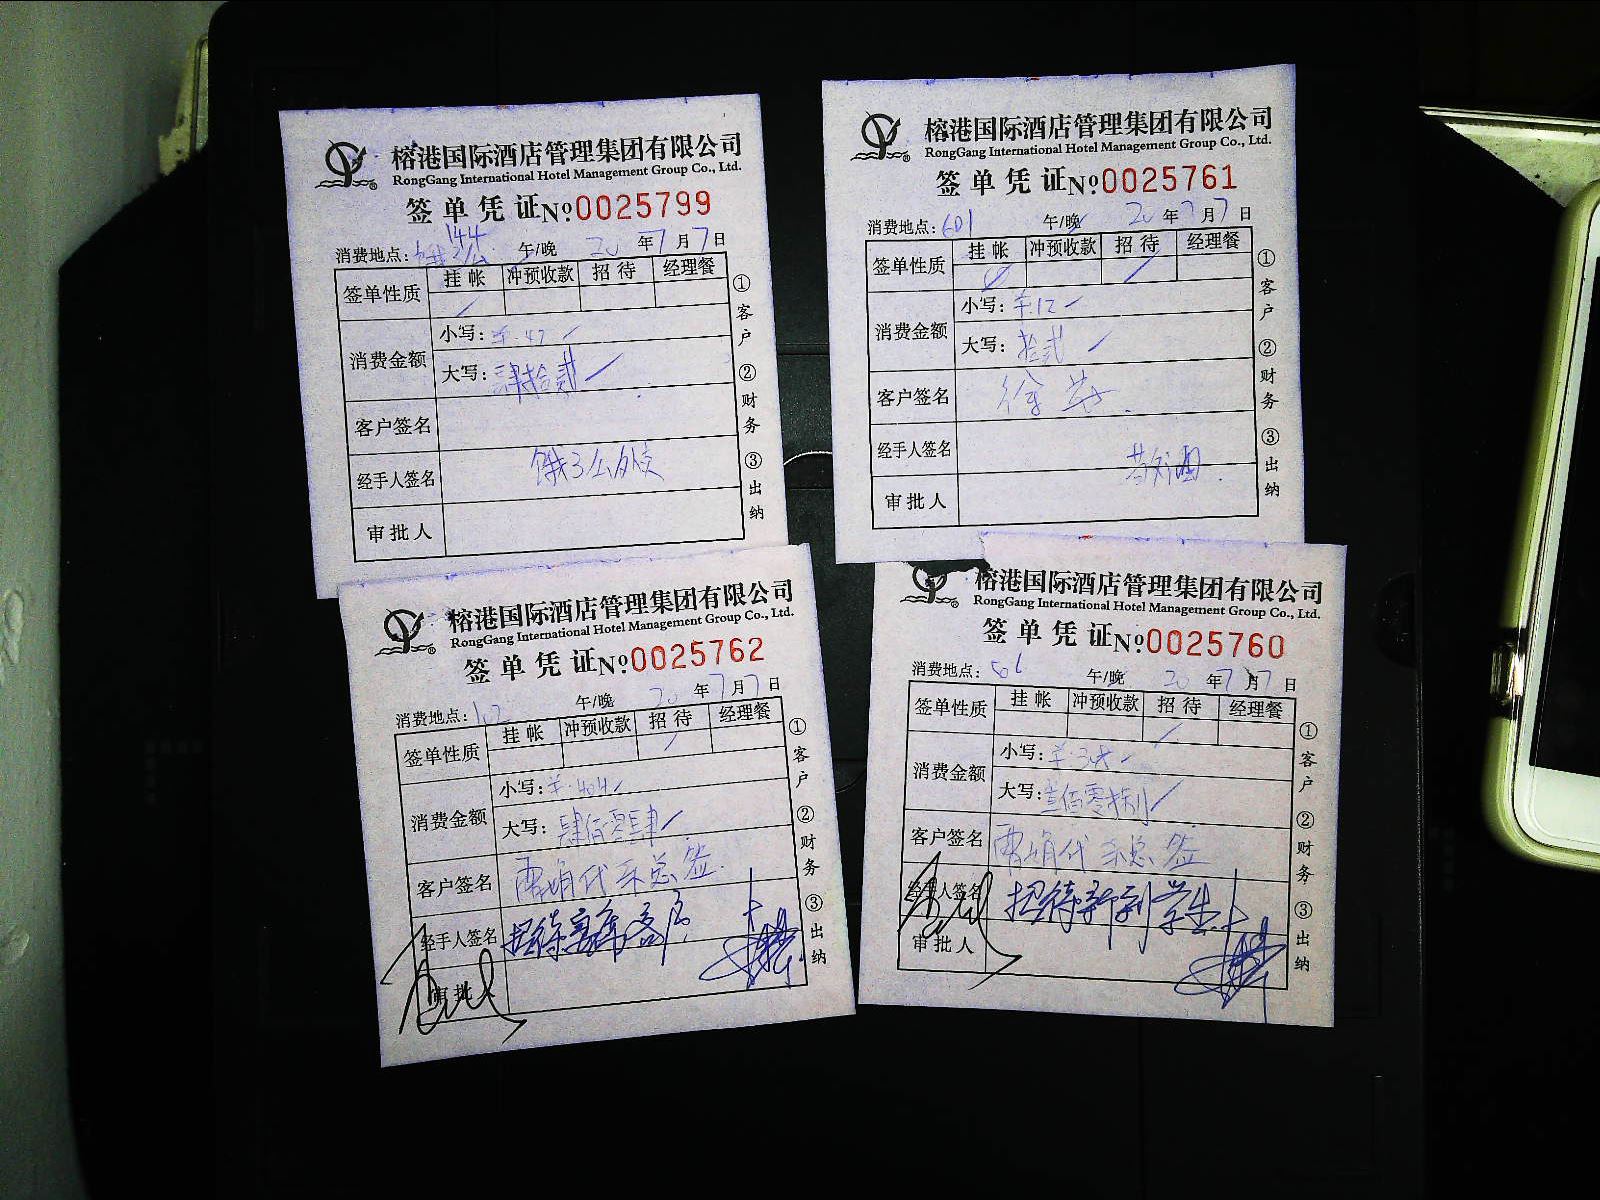 榕港国际酒店管理集团有限公司
RongGang International Hotel Management Group Co., Ltd.
签单凭证№0025799
消费地点: 午/晚 20年7月7日
签单性质 挂帐 冲预收款 招待 经理餐
消费金额 小写:
大写: 肆拾贰
客户签名
经手人签名
审批人
①客户 ②财务 ③出纳
榕港国际酒店管理集团有限公司
RongGang International Hotel Management Group Co., Ltd.
签单凭证№0025761
消费地点: 601 午/晚 20年7月7日
签单性质 挂帐 冲预收款 招待 经理餐
消费金额 小写: ¥12
大写: 拾贰
客户签名
经手人签名
审批人
①客户 ②财务 ③出纳
榕港国际酒店管理集团有限公司
RongGang International Hotel Management Group Co., Ltd.
签单凭证№0025762
消费地点: 102 午/晚 20年7月7日
签单性质 挂帐 冲预收款 招待 经理餐
消费金额 小写: ¥.404
大写: 肆佰零肆
客户签名
经手人签名 招待
审批人
①客户 ②财务 ③出纳
榕港国际酒店管理集团有限公司
RongGang International Hotel Management Group Co., Ltd.
签单凭证№0025760
消费地点: 午/晚 20年7月7日
签单性质 挂帐 冲预收款 招待 经理餐
消费金额 小写:
大写:
客户签名
经手人签名 招待新到学生
审批人
①客户 ②财务 ③出纳